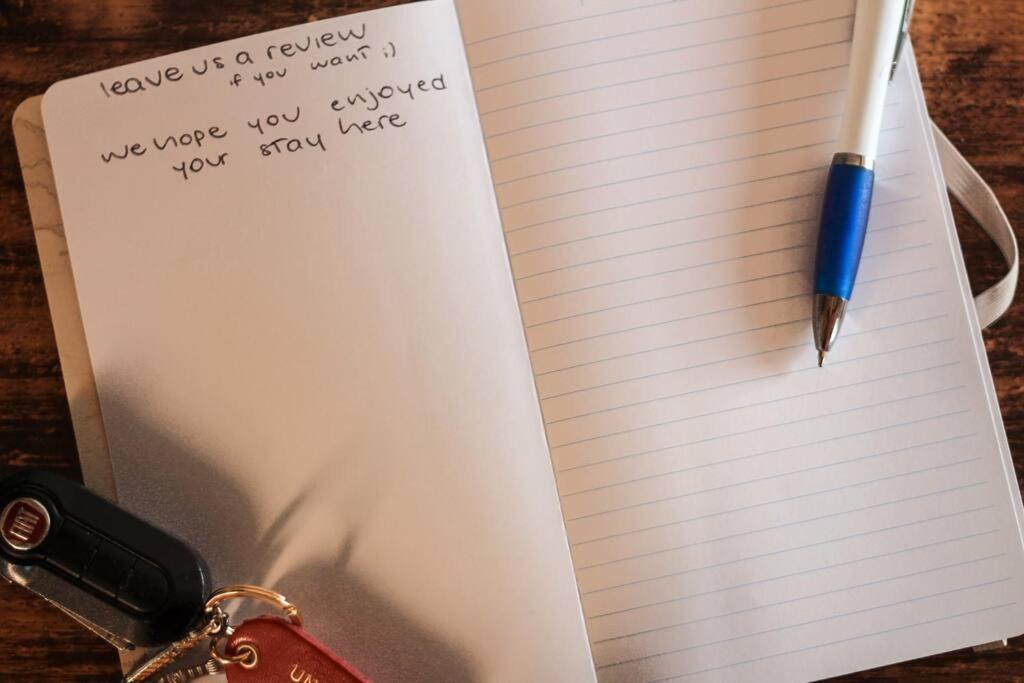 leave us a review
if you want ;)
we hope you enjoyed
your stay here
FIAT
UN